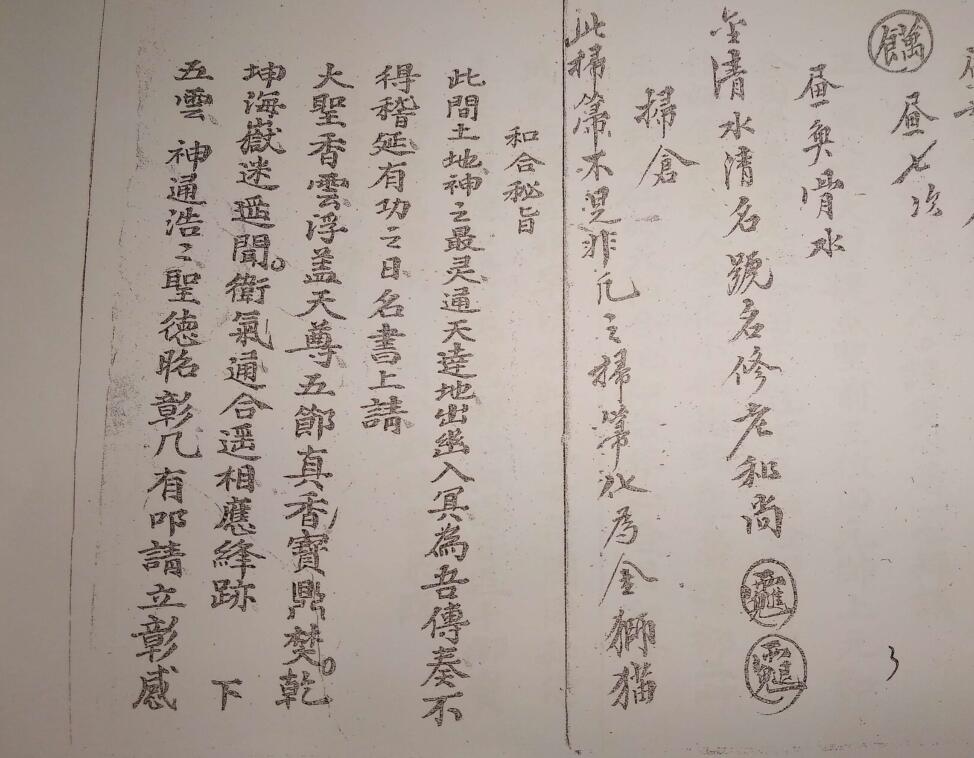 昼七次
昼奐骨水
清水清名號名修老和尚
掃倉
此掃箒不是非凡之掃箒化為金獅猫
和合秘旨
此間土地神之最灵通天達地出幽入冥為吾傳奏不
得稽延有功之日名書上請
大聖香雲浮盖天尊五節真香寳鼎焚乾
坤海嶽迷遥聞衛氣通合遥相應絳跡 下
五雲 神通浩々聖徳昭彰凡有叩請立彰感